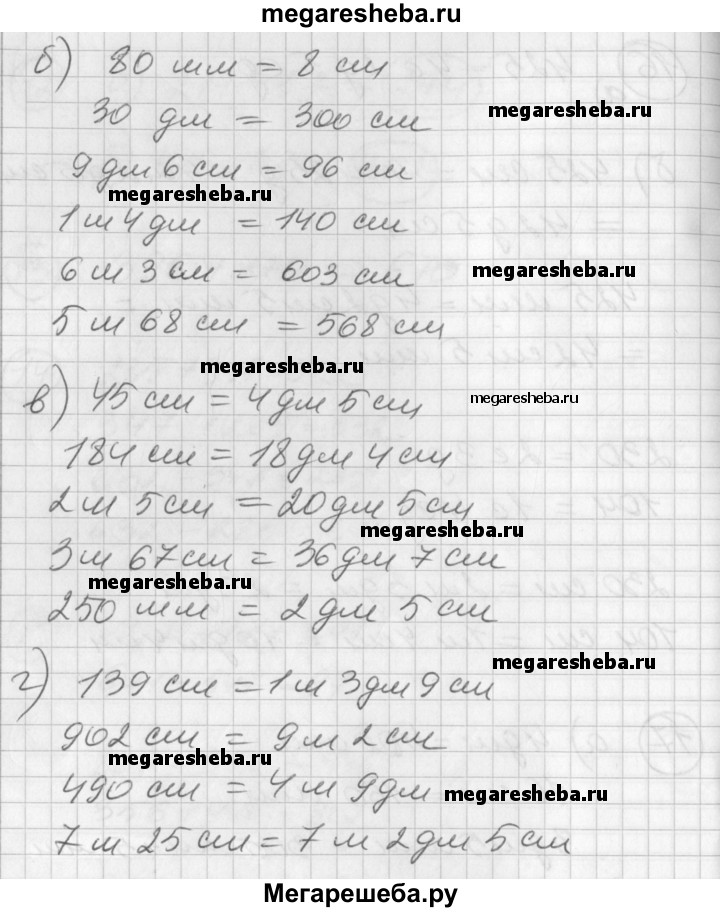 megaresheba.ru
б) 80 мм = 8 см
30 дм = 300 см
megaresheba.ru
9 дм 6 см = 96 см
megaresheba.ru
1 м 4 дм = 140 см
6 м 3 см = 603 см
megaresheba.ru
5 м 68 см = 568 см
megaresheba.ru
в) 45 см = 4 дм 5 см
megaresheba.ru
184 см = 18 дм 4 см
2 м 5 см = 20 дм 5 см
megaresheba.ru
3 м 67 см = 36 дм 7 см
megaresheba.ru
250 мм = 2 дм 5 см
megaresheba.ru
г) 139 см = 1 м 3 дм 9 см
902 см = 9 м 2 см
megaresheba.ru
490 см = 4 м 9 дм
megaresheba.ru
7 м 25 см = 7 м 2 дм 5 см
Мегарешеба.ру